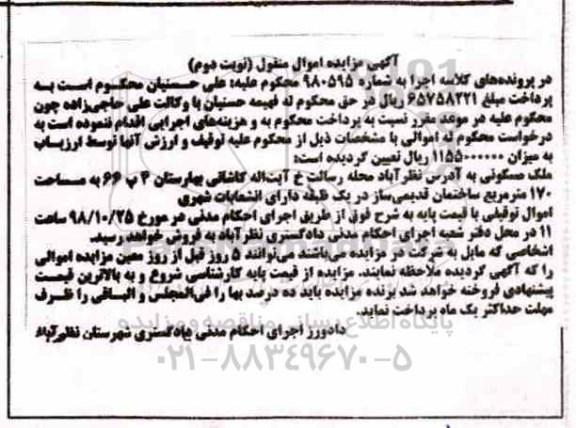 آگهی مزایده اموال منقول (نوبت دوم)
در پرونده‌های کلاسه اجرا به شماره ۹۸۰۵۹۵ محکوم علیه: علی حسنیان محکوم است به
پرداخت مبلغ ۶۵۷۵۸۲۲۱ ریال در حق محکوم له فهیمه حسنیان با وکالت علی حاجی‌زاده چون
محکوم علیه در موعد مقرر نسبت به پرداخت محکوم به و هزینه‌های اجرایی اقدام ننموده است به
درخواست محکوم له اموالی با مشخصات ذیل از محکوم علیه توقیف و ارزش آنها توسط ارزیاب
به میزان ۱۱۵۵۰۰۰۰۰۰ ریال تعیین گردیده است:
ملک مسکونی به آدرس نظرآباد محله رسالت خ آیت‌اله کاشانی بهارستان ۴ پ ۶۶ به مساحت
۱۷۰ مترمربع ساختمان قدیمی‌ساز در یک طبقه دارای انشعابات شهری
اموال توقیفی با قیمت پایه به شرح فوق از طریق اجرای احکام مدنی در مورخ ۹۸/۱۰/۲۵ ساعت
۱۱ در محل دفتر شعبه اجرای احکام مدنی دادگستری نظرآباد به فروش خواهد رسید.
اشخاصی که مایل به شرکت در مزایده می‌باشند می‌توانند ۵ روز قبل از روز معین مزایده اموالی
را که آگهی گردیده ملاحظه نمایند. مزایده از قیمت پایه کارشناسی شروع و به بالاترین قیمت
پیشنهادی فروخته خواهد شد برنده مزایده باید ده درصد بها را فی‌المجلس و الباقی را ظرف
مهلت حداکثر یک ماه پرداخت نماید.
پایگاه اطلاع رسانی مناقصه و مزایده
دادورز اجرای احکام مدنی دادگستری شهرستان نظرآباد
۰۲۱-۸۸۳۴۹۶۷۰-۵